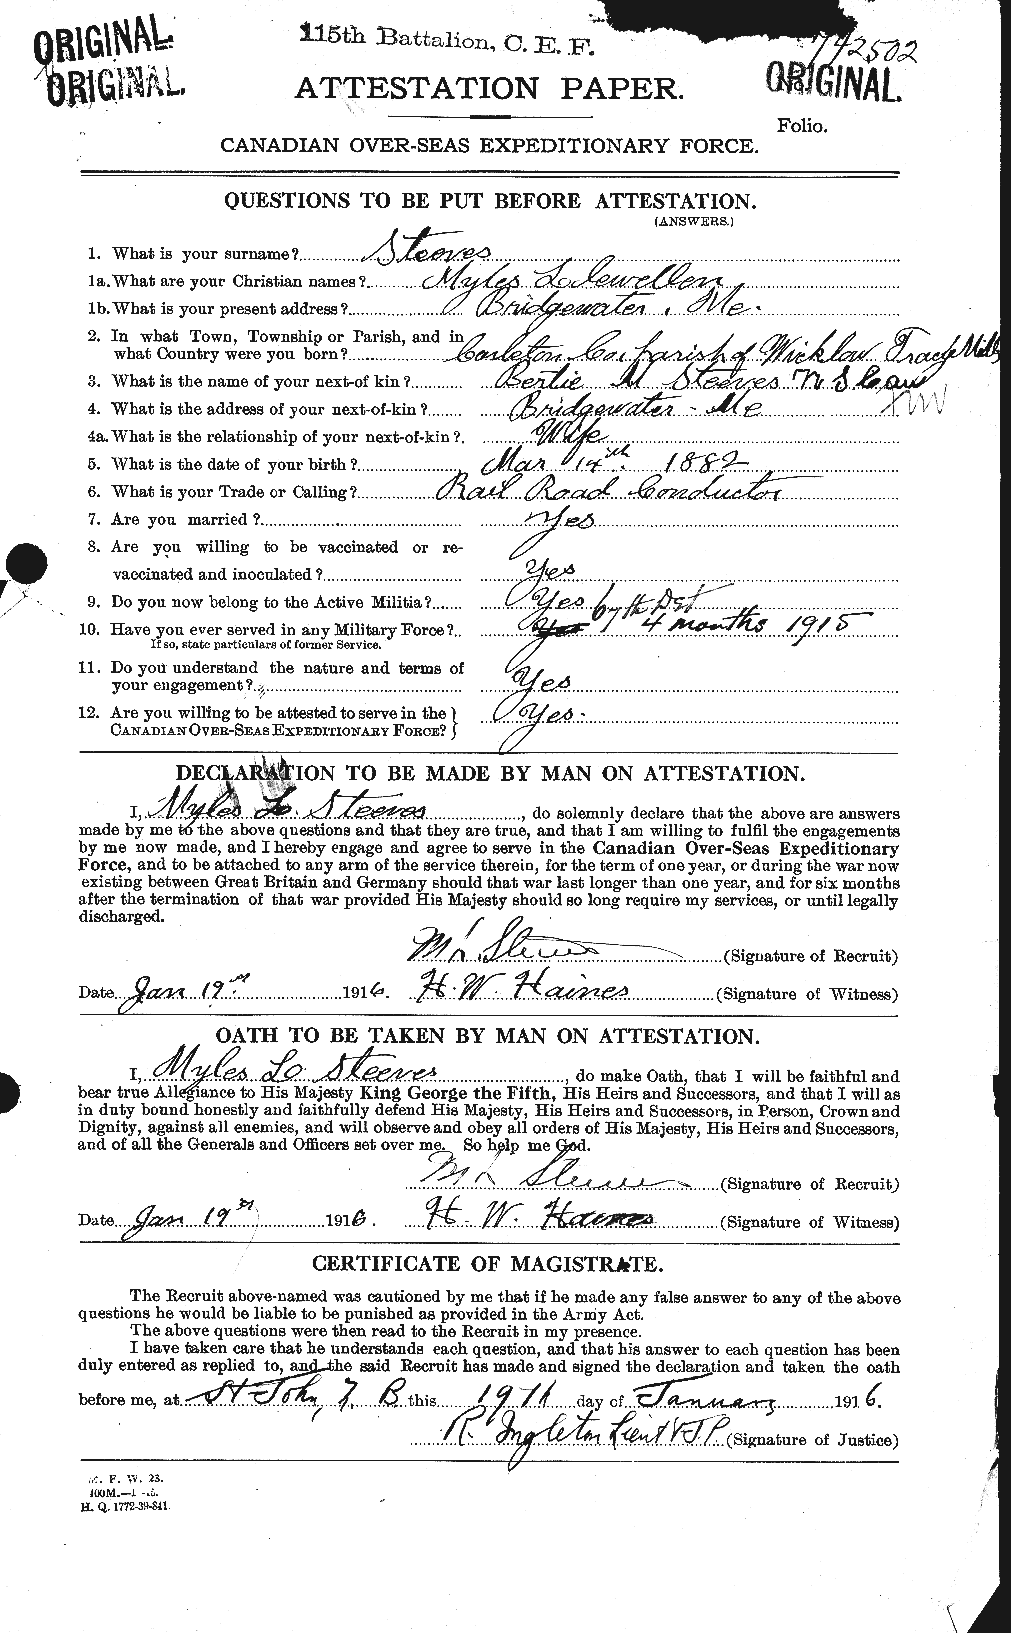 ORIGINAL
ORIGINAL
115th Battalion, C. E. F.
742502
ORIGINAL
ATTESTATION PAPER.
Folio.
CANADIAN OVER-SEAS EXPEDITIONARY FORCE.
QUESTIONS TO BE PUT BEFORE ATTESTATION.
(ANSWERS.)
1. What is your surname? Steeves
1a. What are your Christian names? Myles Llewellen
1b. What is your present address? Bridgewater, Me.
2. In what Town, Township or Parish, and in
what Country were you born? Carleton Co. Parish of Wicklow Tracy Mills
3. What is the name of your next-of kin? Bertie M Steeves
4. What is the address of your next-of-kin? Bridgewater - Me
4a. What is the relationship of your next-of-kin? Wife
5. What is the date of your birth? Mar 14th 1882
6. What is your Trade or Calling? Rail Road Conductor
7. Are you married? Yes
8. Are you willing to be vaccinated or re-
vaccinated and inoculated? Yes
9. Do you now belong to the Active Militia? Yes 67th
10. Have you ever served in any Military Force? Yes 4 months 1915
If so, state particulars of former Service.
11. Do you understand the nature and terms of
your engagement? Yes
12. Are you willing to be attested to serve in the
CANADIAN OVER-SEAS EXPEDITIONARY FORCE? Yes.
DECLARATION TO BE MADE BY MAN ON ATTESTATION.
I, Myles L. Steeves, do solemnly declare that the above are answers
made by me to the above questions and that they are true, and that I am willing to fulfil the engagements
by me now made, and I hereby engage and agree to serve in the Canadian Over-Seas Expeditionary
Force, and to be attached to any arm of the service therein, for the term of one year, or during the war now
existing between Great Britain and Germany should that war last longer than one year, and for six months
after the termination of that war provided His Majesty should so long require my services, or until legally
discharged.
M L Steeves (Signature of Recruit)
Date Jan 19th 1916. H. W. Haines (Signature of Witness)
OATH TO BE TAKEN BY MAN ON ATTESTATION.
I, Myles L. Steeves, do make Oath, that I will be faithful and
bear true Allegiance to His Majesty King George the Fifth, His Heirs and Successors, and that I will as
in duty bound honestly and faithfully defend His Majesty, His Heirs and Successors, in Person, Crown and
Dignity, against all enemies, and will observe and obey all orders of His Majesty, His Heirs and Successors,
and of all the Generals and Officers set over me. So help me God.
M L Steeves (Signature of Recruit)
Date Jan 19th 1916. H. W. Haines (Signature of Witness)
CERTIFICATE OF MAGISTRATE.
The Recruit above-named was cautioned by me that if he made any false answer to any of the above
questions he would be liable to be punished as provided in the Army Act.
The above questions were then read to the Recruit in my presence.
I have taken care that he understands each question, and that his answer to each question has been
duly entered as replied to, and the said Recruit has made and signed the declaration and taken the oath
before me, at St John, N. B this 19th day of January 1916.
R. Ingleton Lieut & J.P. (Signature of Justice)
M. F. W. 23.
400M.
H. Q. 1772-39-841.